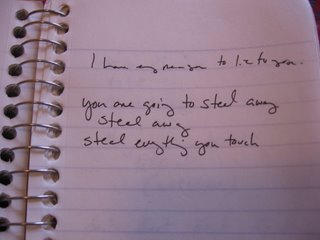 I have my reason to lie to you.
you are going to steel away
steel away
steel everything you touch